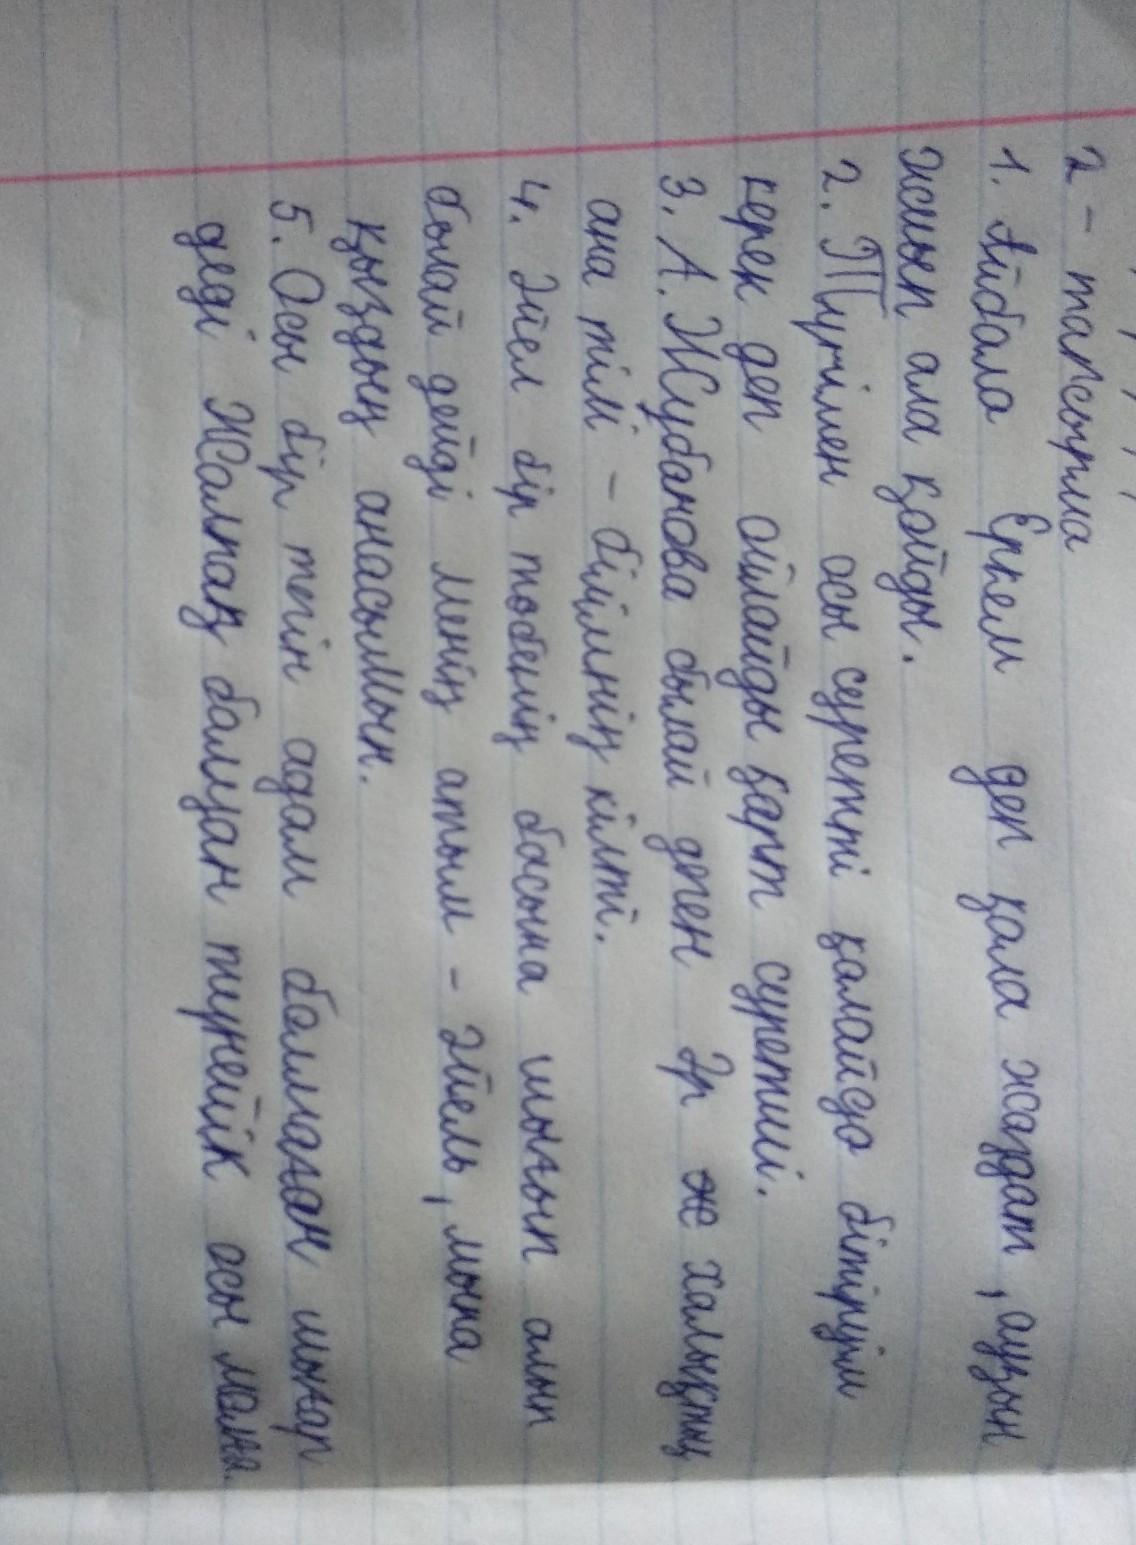 2 - тапсырма
1. Айбала Еркем деп қала жаздап, аузын
жиып ала қойды.
2. Түгілмен осы суретті қалайда бітіруім
керек деп ойлайды қарт суретші.
3. А. Жұбанова былай деген Әр ж халықтың
ана тілі - білімнің кілті.
4. Әйел бір төбенің басына шығып алып
былай дейді менің атым - Әйель, мына
қыздың анасымын.
5. Осы бір тегін адам болмаған шығар
деді Жалпақ балқан түнейік осы маңа.